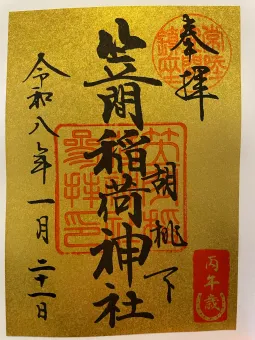 奉拝
胡桃下
笠間稲荷神社
令和八年一月二十一日
丙午歳